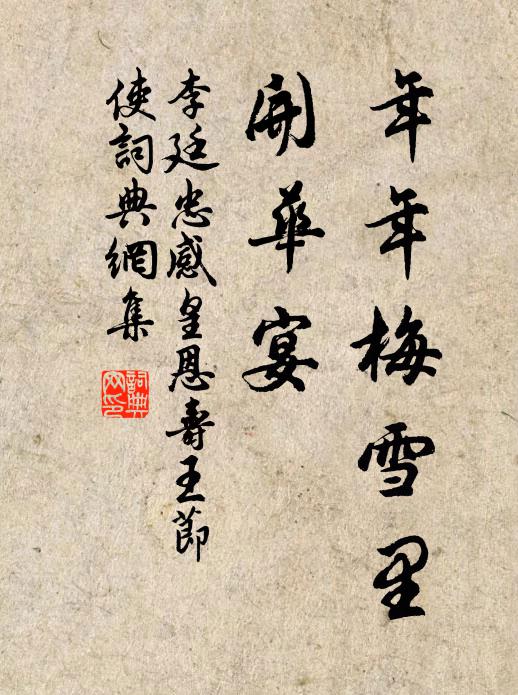 年年梅雪里
開華宴
李廷忠感皇恩壽王節
使詞典網集
詞典
网印